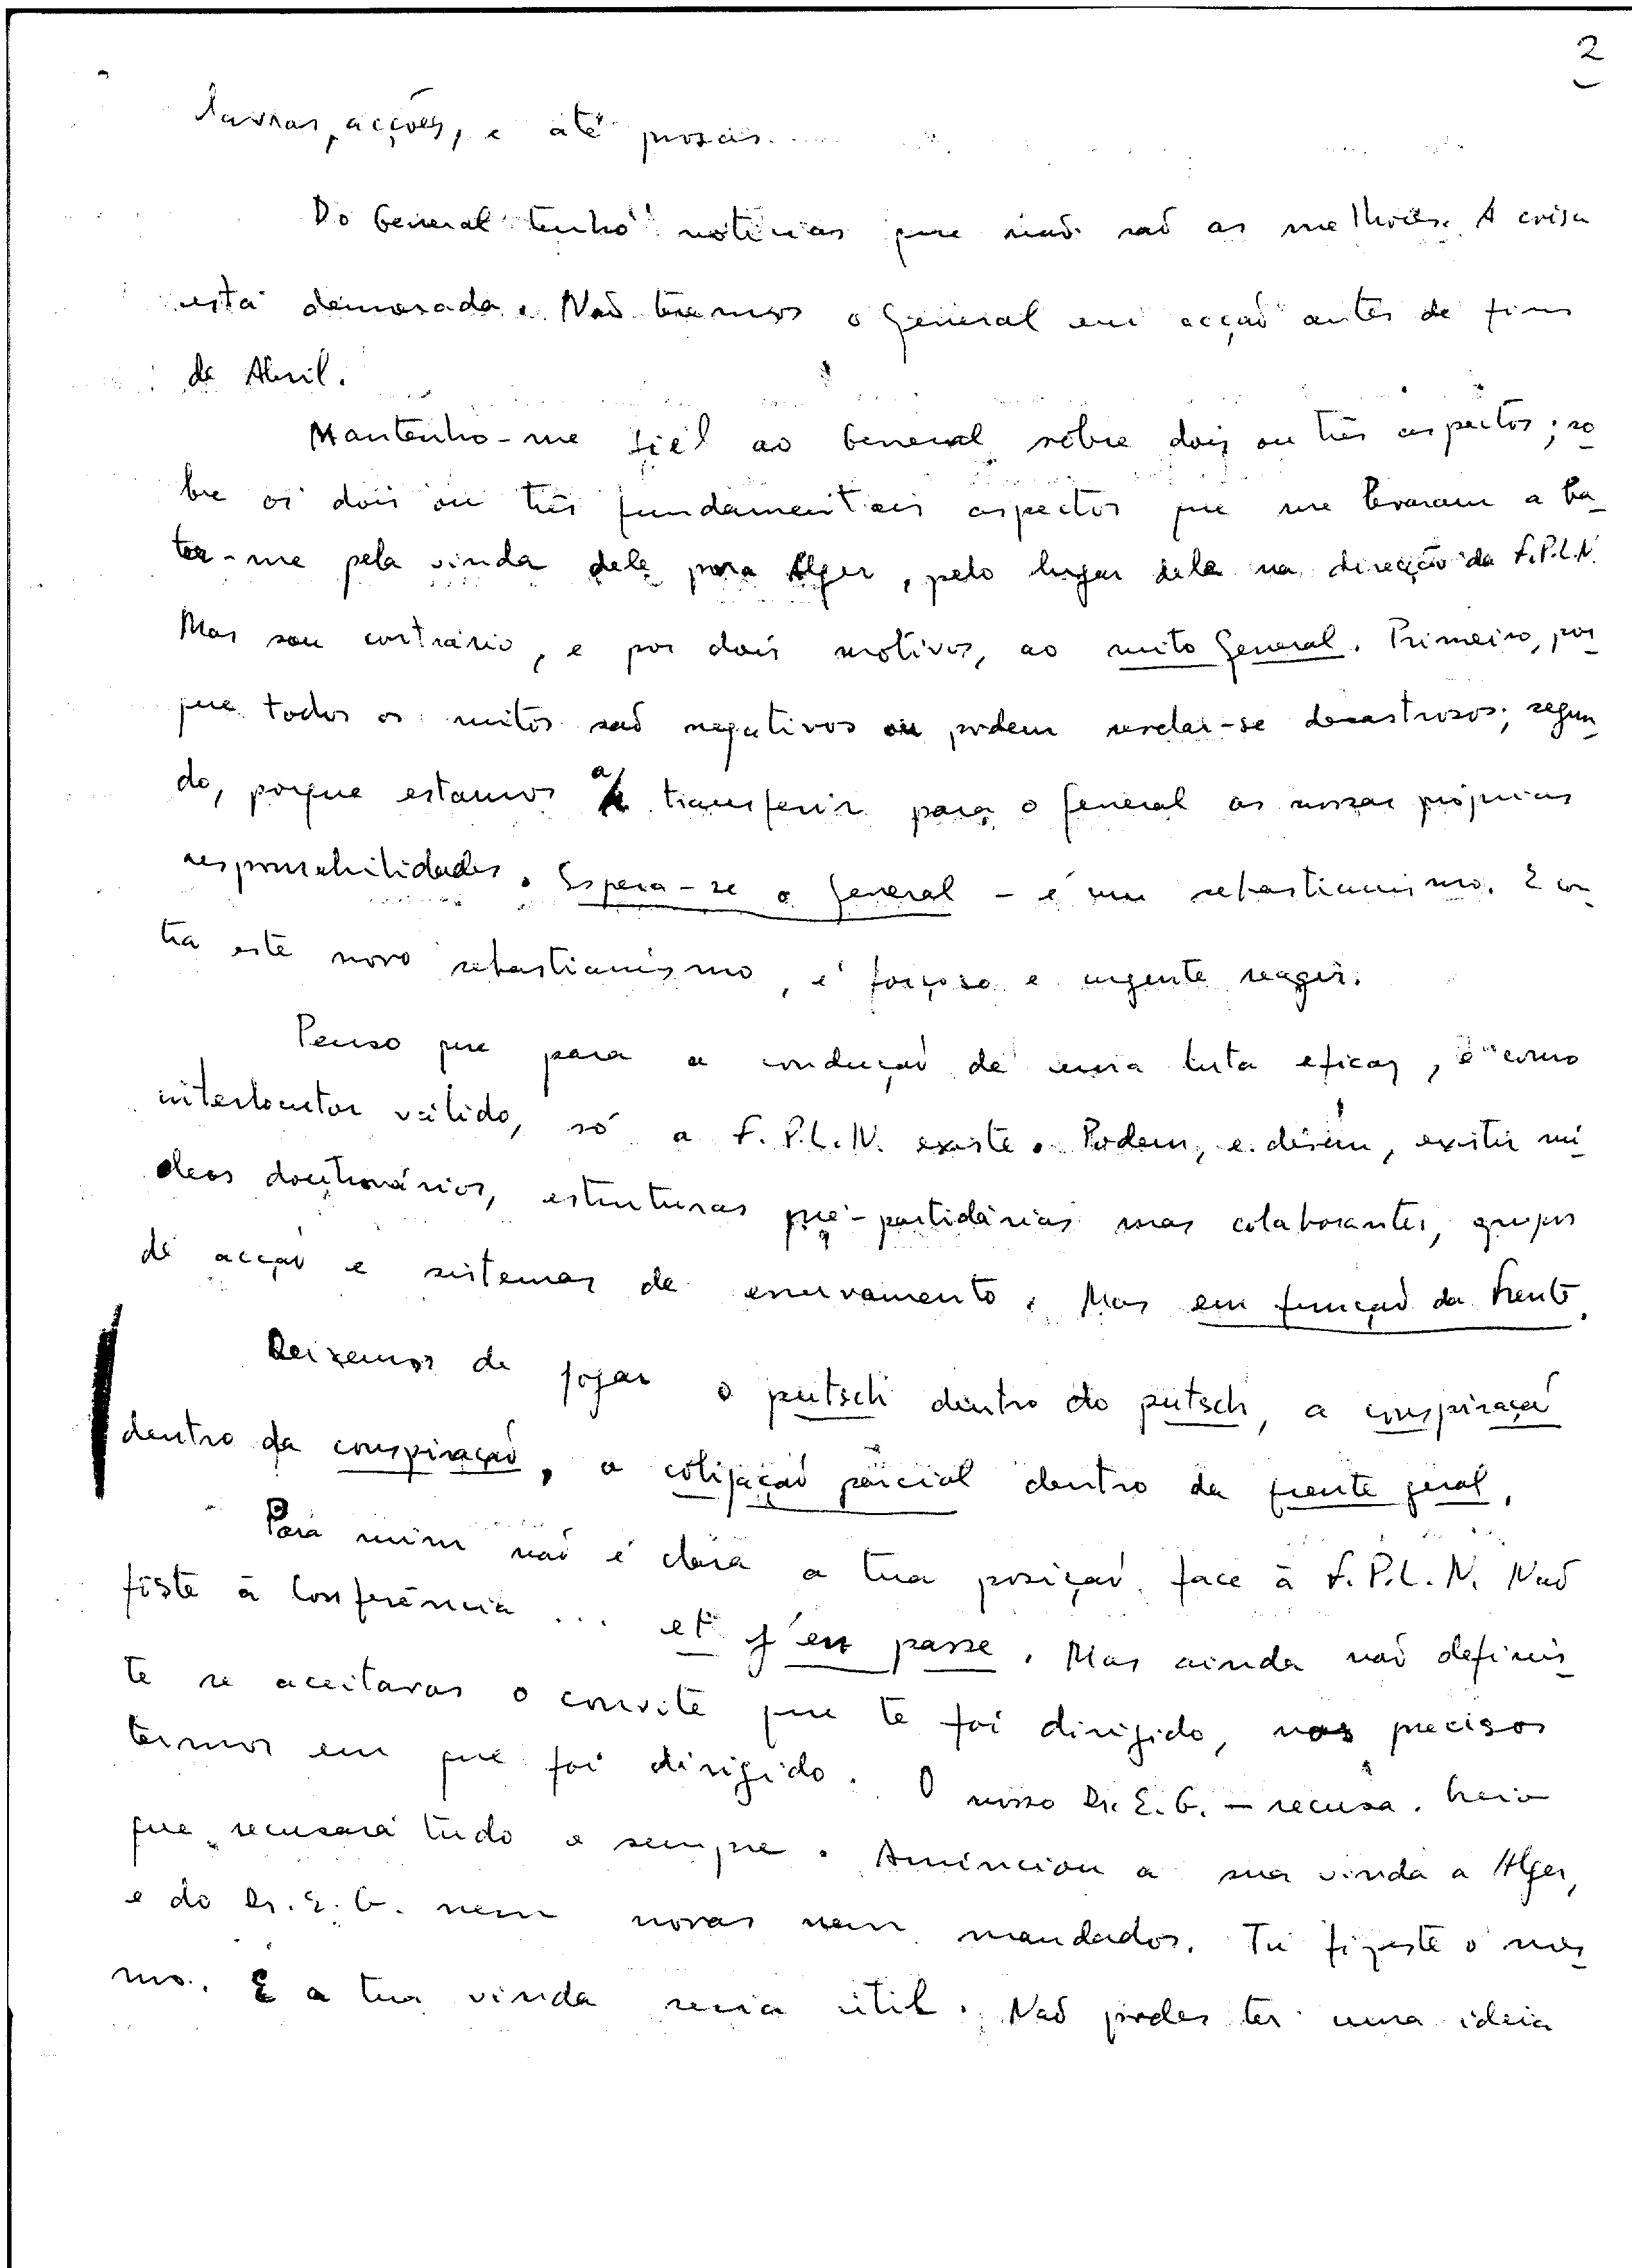 2
lavras, acções, e até prosas.
Do General tenho notícias que não são as melhores. A coisa
está demorada. Não teremos o General em acção antes de fins
de Abril.
Mantenho-me fiel ao General sôbre dois ou três aspectos; so
bre os dois ou três fundamentais aspectos que me levaram a ba-
ter-me pela vinda dele para Alger, pelo lugar dele na direcção da F.P.L.N.
Mas sou contrário, e por dois motivos, ao mito General. Primeiro, por
que todos os mitos são negativos ou podem revelar-se desastrosos; segun
do, porque estamos a transferir para o General as nossas próprias
responsabilidades. Espera-se o General - é um sebastianismo. E con
tra este novo sebastianismo, é forçoso e urgente reagir.
Penso que para a condução de uma luta eficaz, e como
interlocutor válido, só a F.P.L.N. existe. Podem, e devem, existir nú
cleos doutrinários, estruturas pré-partidárias mas colaborantes, grupos
de acção e sistemas de enervamento. Mas em função da Frente.
Deixemos de jogar o putsch dentro do putsch, a conspiração
dentro da conspiração, a coligação parcial dentro da frente geral.
Para mim não é clara a tua posição face à F.P.L.N. Não
fôste à Conferência ... et j'en passe. Mas ainda não definis
te se aceitavas o convite que te foi dirigido, nos precisos
termos em que foi dirigido. O nosso Dr. E.G. - recusa. Creio
que recusará tudo e sempre. Anunciou a sua vinda a Alger,
e do Dr. E.G. nem novas nem mandados. Tu fizeste o mes
mo. E a tua vinda seria útil. Não podes ter uma ideia